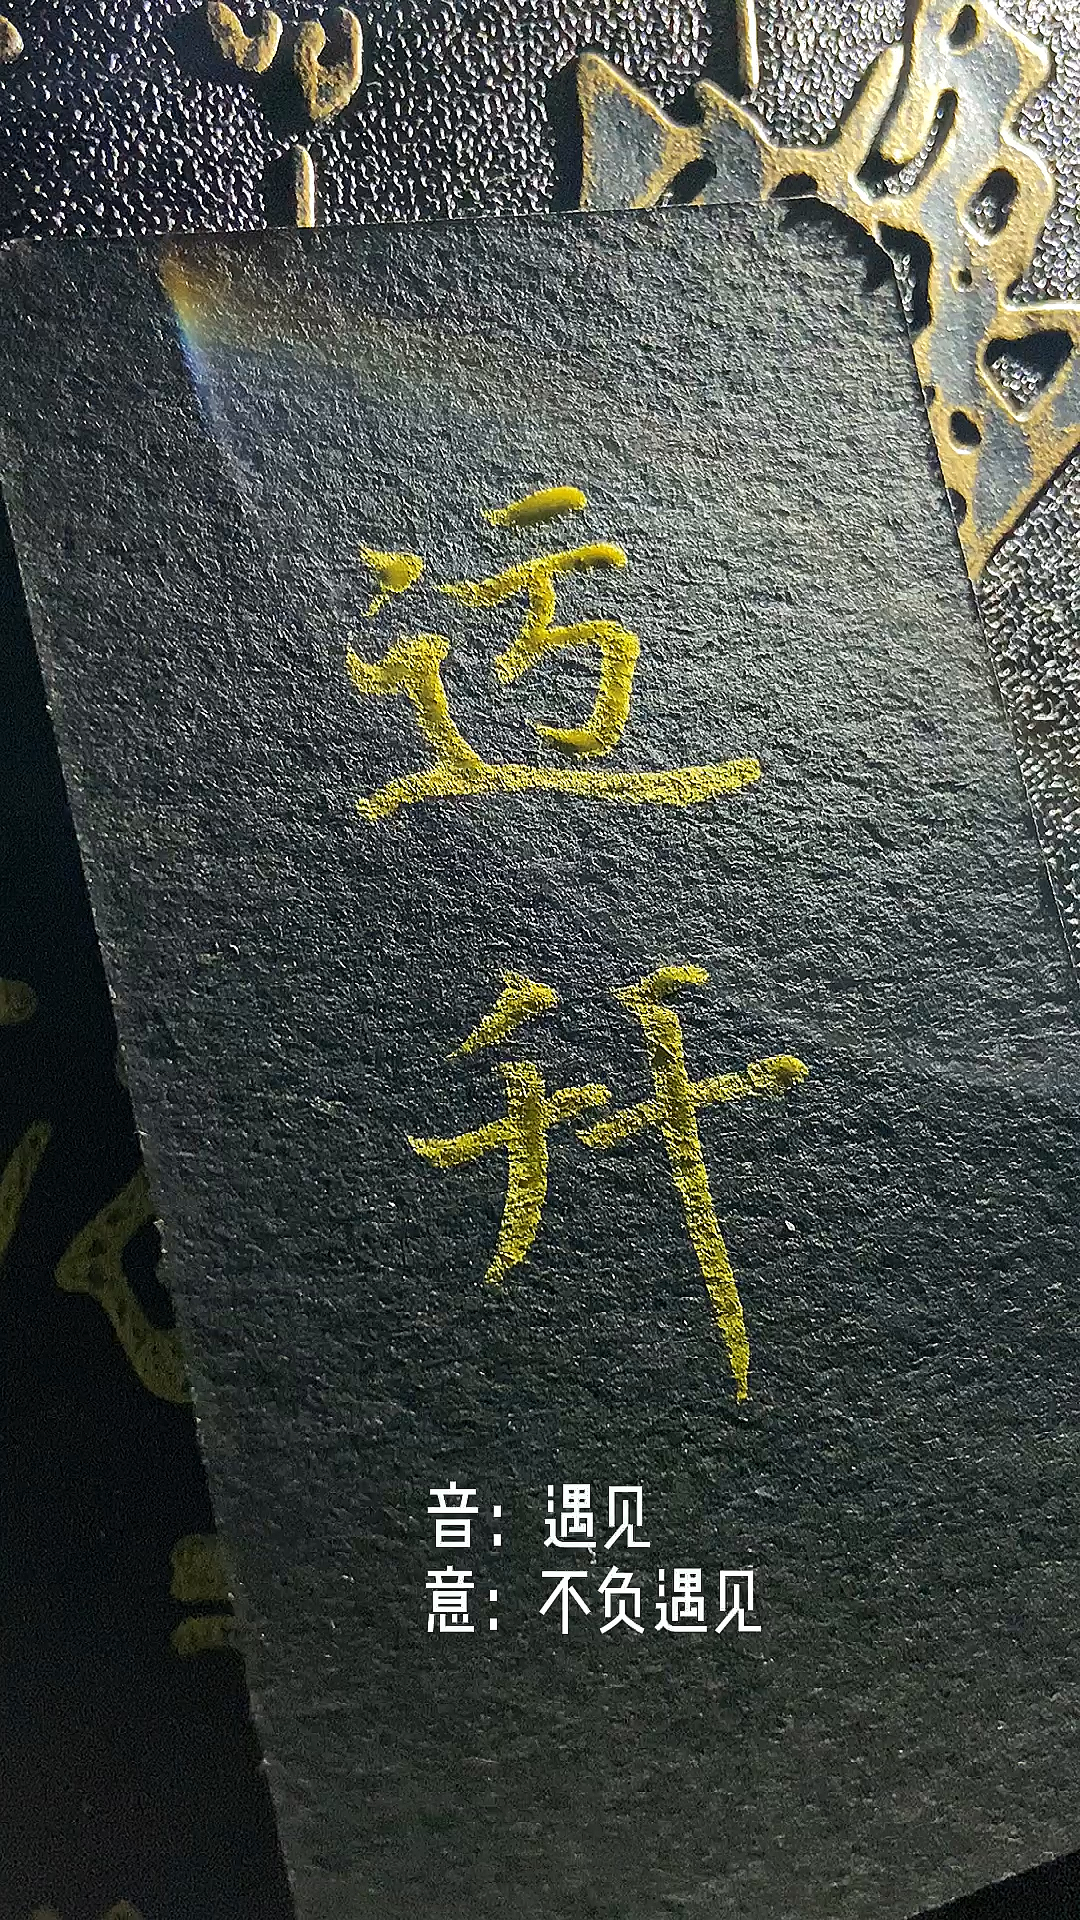 迃
音：遇见
意：不负遇见